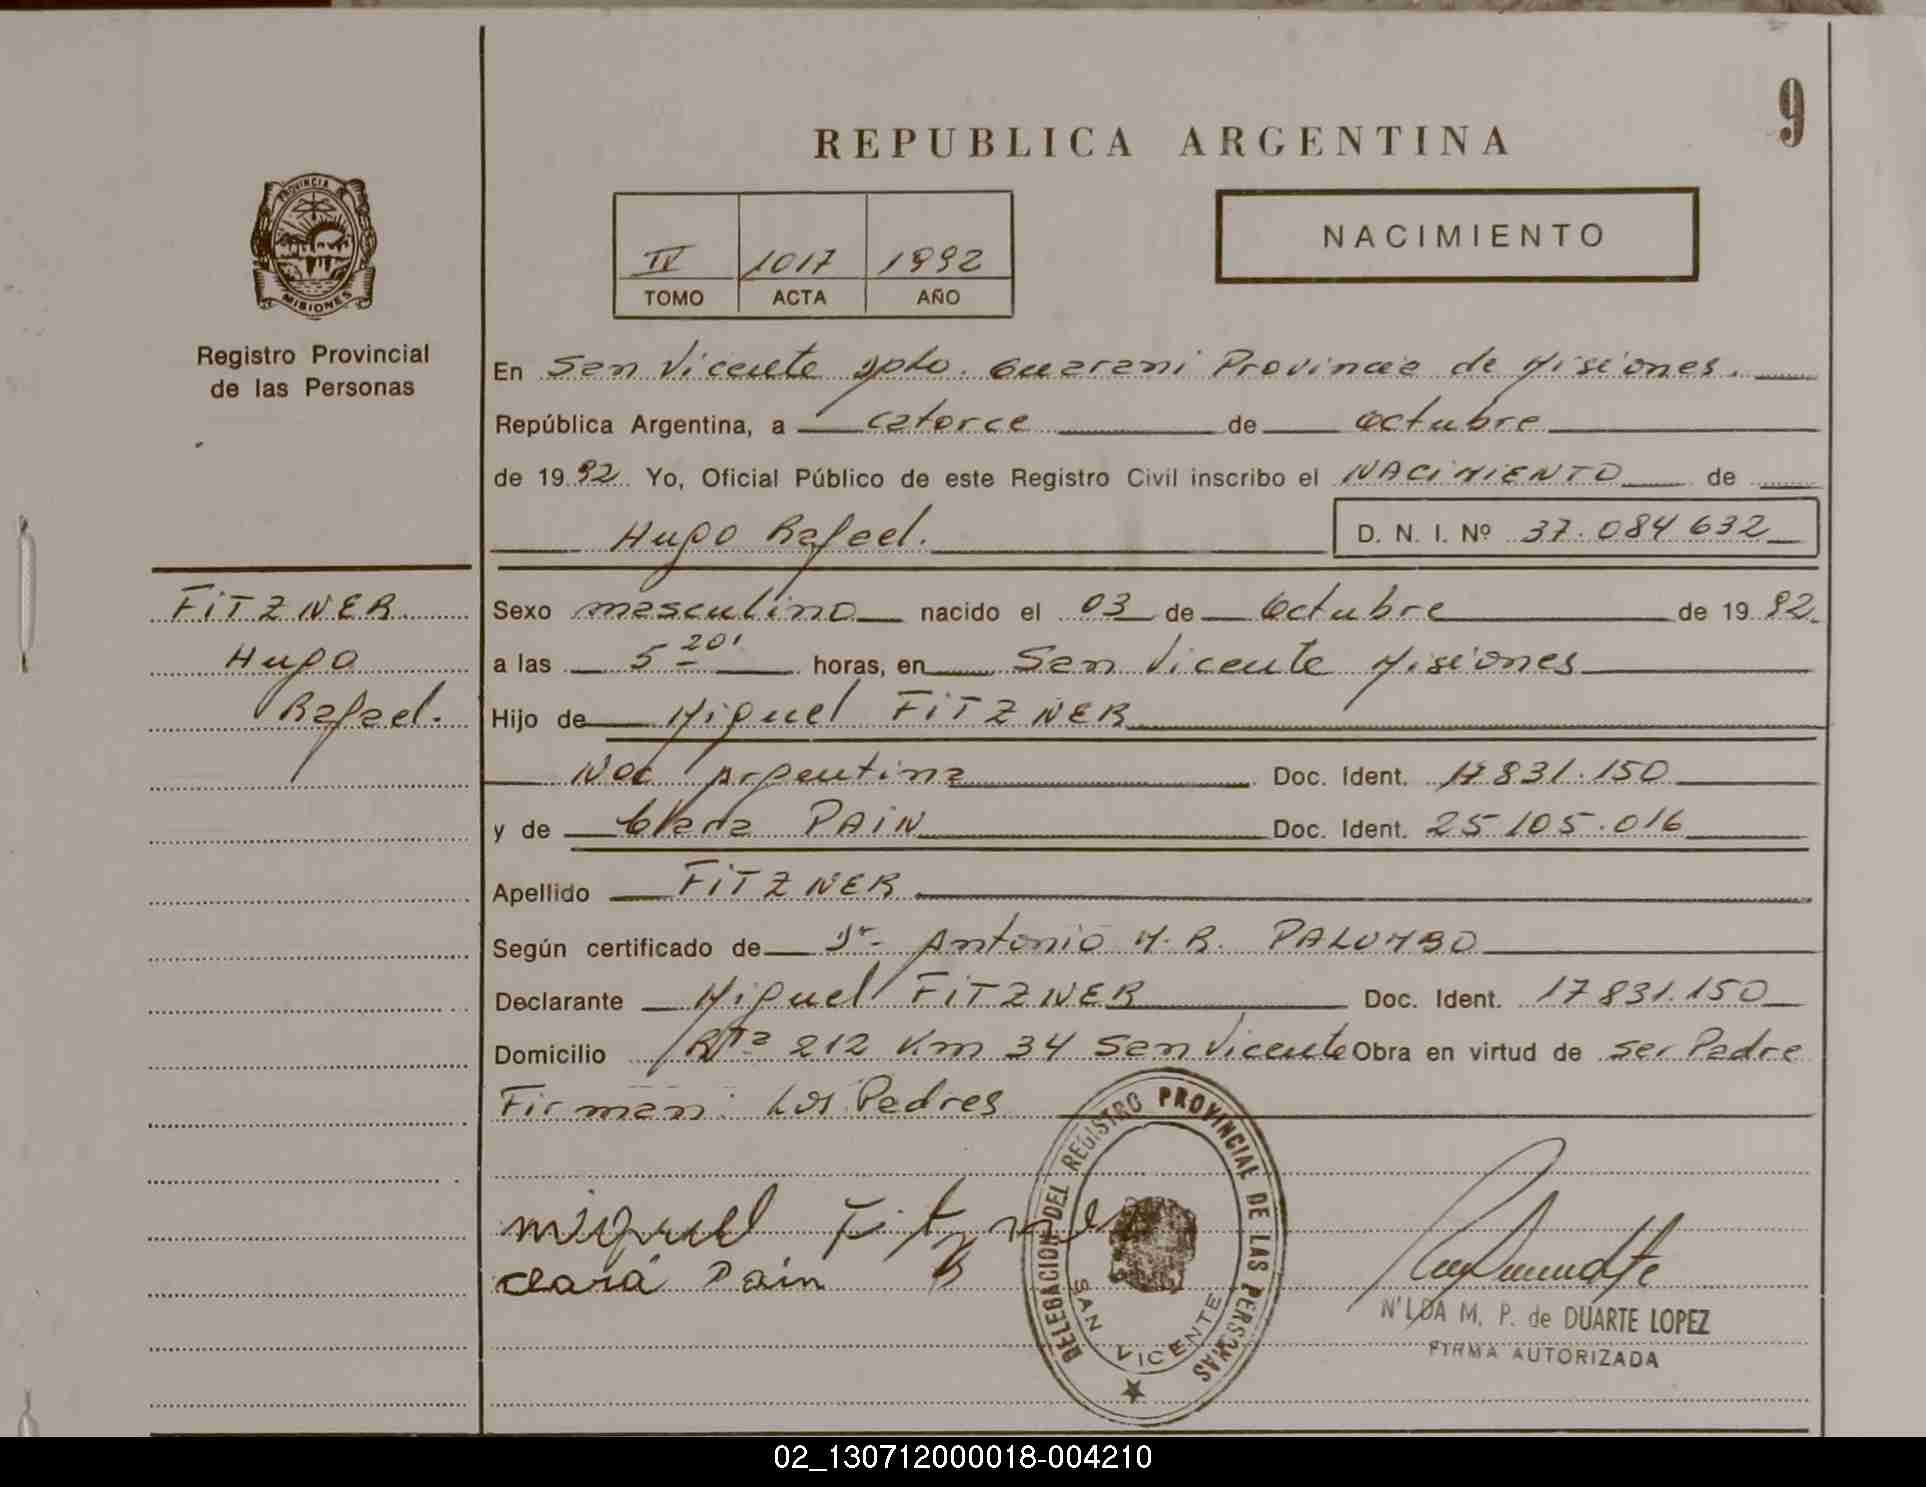 9
REPUBLICA ARGENTINA
PROVINCIA DE MISIONES
Registro Provincial
de las Personas
IV 1017 1992
TOMO ACTA AÑO
NACIMIENTO
En San Vicente Dpto. Guarani Provincia de Misiones.
República Argentina, a catorce de Octubre
de 1992 Yo, Oficial Público de este Registro Civil inscribo el NACIMIENTO de
Hugo Rafael. D. N. I. Nº 37.084 632
FITZNER
Hugo
Rafael.
Sexo masculino nacido el 03 de Octubre de 1992
a las 5 20' horas, en San Vicente Misiones
Hijo de Miguel FITZNER
Nac Argentina Doc. Ident. 17831.150
y de Clara PAIN Doc. Ident. 25 105.016
Apellido FITZNER
Según certificado de Dr. Antonio M. R. PALOMBO
Declarante Miguel FITZNER Doc. Ident. 17831.150
Domicilio Rta 212 Km 34 San Vicente Obra en virtud de ser Padre
Firman: Los Padres
miguel Fitzner
clara Pain
DELEGACION DEL REGISTRO PROVINCIAL DE LAS PERSONAS
SAN VICENTE
N'LDA M. P. de DUARTE LOPEZ
FIRMA AUTORIZADA
02_130712000018-004210